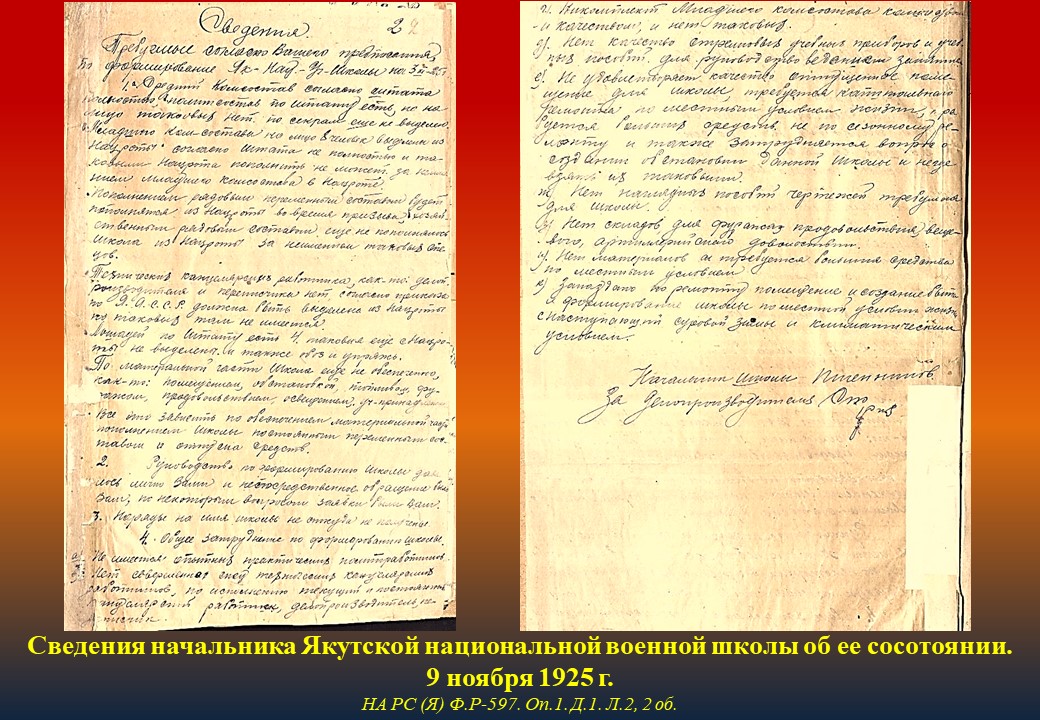 Сведения 2
Требуемые согласно Вашего предписания
По формирование Як-Нац-Ур-Школы на
1. Средний Комсостав согласно штата
полностью комсостав по штату есть, но на
лицо таковых нет по секрам еще не выделено
Младшего Ком-состава на лицо 8 человек выделили из
Нацроты согласно штата не полностью и та-
ковыми Нацрота пополнить не может за неиме-
нием младшего комсостава в Нацроте.
Пополнением рядовым переменным составом будет
пополнятся из Нацроты во время призыва, хозяй-
ственным рядовым составом еще не пополнялась
школа из Нацроты за неимением таковых спе-
цов.
Технических канцелярских работников, как-то: дело-
производителя и переписчика нет, согласно приказа
по Я.А.С.С.Р. должна быть выделена из Нацроты
но таковых там не имеется.
Лошадей по Штату есть 4, таковыя еще с Нацро-
ты не выделены, и также обоз и упряжь.
По материальной части Школа еще не обеспечено,
как-то: помещением, обстановкой, топливом, фу-
ражом, продовольствием, освещением,
Все это зависить по обеспечением материальной части
пополнением Школы постоянным переменным сос-
тавом и отпуска средств.
2. Руководство по формированию школы дава-
лось лично Вами и непосредственное обращение было
Вам, по некоторым вопросам заявки были Вам.
3. Наряды на имя школы не откуда не получены.
4. Общее затруднение по формированию школы.
а) Не имеется опытных практических политработников.
Нет совершенно спец технических канцелярских
работников, по исполнению текущий и постоянный
канцелярский работник, делопроизводитель, пе-
реписчик.
г) Некомплект Младшего комсостава
и качеством, и нет таковых.
д) Нет качество стрелковых учебных приборов и учеб-
ных пособий для руководство ведения занятия
е) Не удовлетворяет качество отпущенное поме-
щение для школы, требуется капитального
ремонта по местным условием жизни,
буется больших средств не по сезонному ре-
монту и также затрудняется вопрос о
создании обстановки данной Школы
таковыми.
ж) Нет наглядных пособий чертежей требуемых
для школы.
з) Нет складов для фуража продовольствия, веще-
вого, артиллерийского довольствии.
и) Нет материалов и требуется большие средства
по местным условием
к) Запоздано по ремонту помещение и создание быта
и формирование школы по местной условии жизни
с наступающий суровой зимы и климатическим
условием.
Начальник школы
За делопроизводителя
Сведения начальника Якутской национальной военной школы об ее сосотоянии.
9 ноября 1925 г.
НА РС (Я) Ф.Р-597. Оп.1. Д.1. Л.2, 2 об.